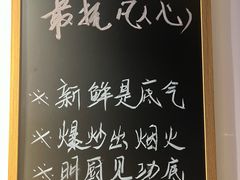 最抚凡人心
※新鲜是底气
※爆炒出烟火
※明厨见功底